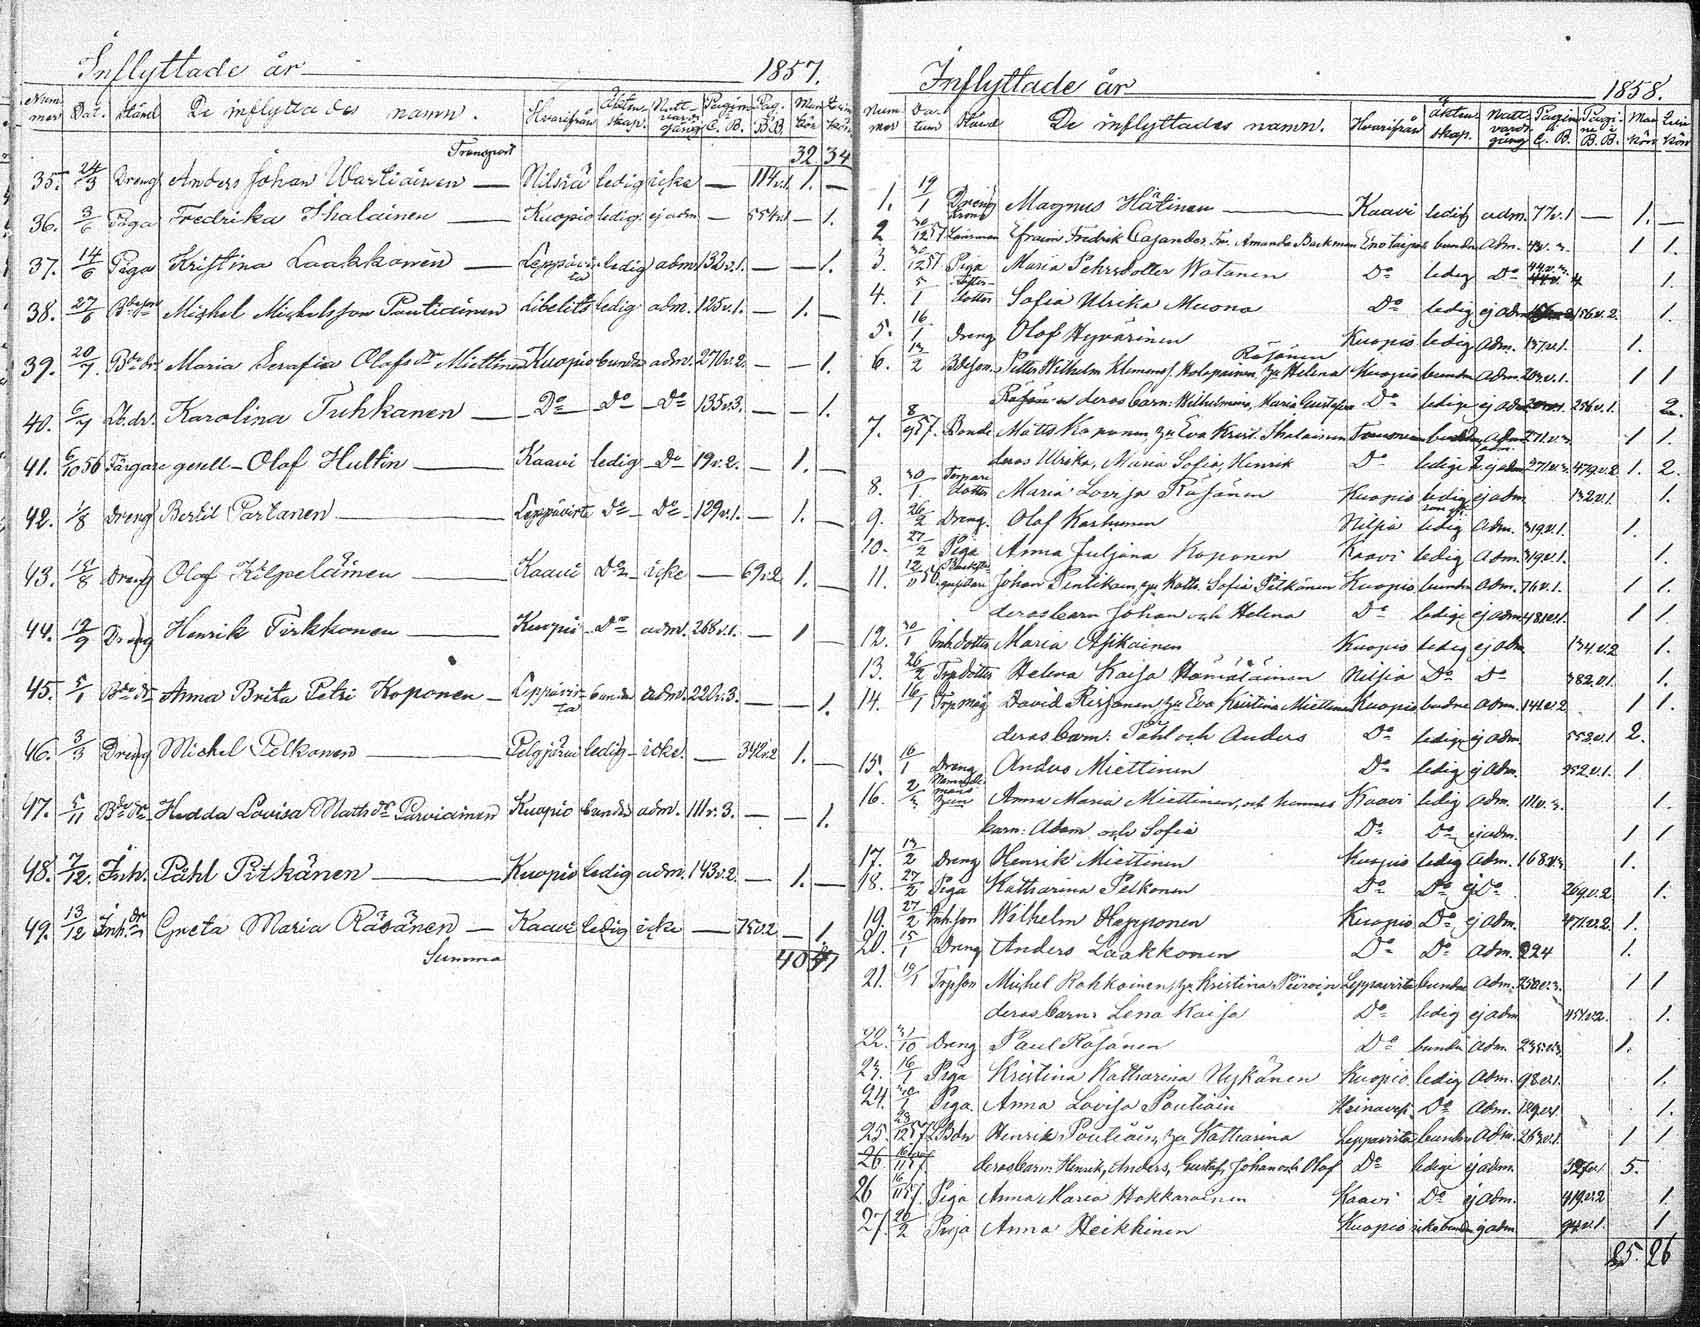 Inflyttade år 1857.
Nummer Dat. Stånd De inflyttades namn. Hvarifrån Äktenskap. Nattvardsgång Pagina C. B. Pag. B. B. Mankön Qvinkön
Transport 32 34
35. 24/3 Dreng Anders Johan Wartiainen Nilsiä ledig icke — 114v.1. 1. —
36. 3/6 Piga Fredrika Ihalainen Kuopio ledig. ej adm. — 554v.1 — 1.
37. 14/6 Piga Kristina Laakkonen Leppävirta ledig adm. 132v.1. — — 1.
38. 27/6 Michel Michelsson Poutiainen Libelits ledig adm. 125v.1. — 1. —
39. 20/7 Maria Serafia Olofs dr Miettinen Kuopio bunden adm. 270v.2. — — 1.
40. 6/7 Karolina Tuhkanen Do Do Do 135v.3. — — 1.
41. 6/10 56 Färgare gesell Olof Hultin Kaavi ledig Do 19v.2. — 1. —
42. 1/8 Dreng Bertil Partanen Leppävirta Do Do 129v.1. — 1. —
43. Dreng Olof Kilpeläinen Kaavi Do icke — 69v.2 1. —
44. 12/9 Dreng Henrik Tirkkonen Kuopio Do adm. 268v.1. — 1 —
45. 5/1 Anna Brita Petri Koponen Leppävirta bunden adm. 220v.3. — — 1.
46. 3/3 Dreng Michel Pelkonen Pelgjärvi ledig icke. — 342v.2 1. —
47. 5/11 Hedda Lovisa Matts dr Parviainen Kuopio bunden adm. 111v.3. — — 1.
48. 7/12. Inh. Påhl Pitkänen Kuopio ledig adm. 143v.2. — 1. —
49. 13/12 Inh. dr Greta Maria Räsänen Kaavi ledig icke — 75v.2 — 1.
Summa 40 41
Inflyttade år 1858.
Nummer Datum Stånd De inflyttades namn. Hvarifrån Äktenskap. Nattvardsgång Pagina i C. B. Pagina i B. B. Mankön Qvinkön
1. 19/1 Dreng Magnus Hätinen Kaavi ledig adm. 77v.1 — 1. —
2 30/12 57 Länsman Efraim Fredrik Cajander, Fru Amanda Backman Enotaipale bunden adm. 1 1.
3. 30/12 57. Piga Maria Pehrsdotter Watanen Do ledig Do 1.
4. 5/1 dotter Sofia Ulrika Muona Do ledig ej adm. 156v.2. 1.
5. 16/1 Dreng Olof Hyvärinen Kuopio ledig adm. 137v.1. 1.
6. 13/2 Bdeson. Petter Wilhelm Klemens s. Holopainen, hu Helena Räsänen Kuopio bunden adm. 203v.1. 1 1
deras barn: Wilhelmina, Maria Gustafva Do ledige ej adm. 256v.1. 2.
7. 8/9 57. Bonde Matts Koponen, hu Eva Krist. Ihalainen bunden adm. 271v.3. 1 1
deras Ulrika, Maria Sofia, Henrik Do ledige ej adm. 271v.3. 479v.2 1. 2.
8. 30/1. Torpare dotter Maria Lovisa Räsänen Kuopio ledig ej adm. 132v.1. 1.
9. 26/2 Dreng. Olof Karhunen Nilsiä ledig adm. 319v.1. 1.
10. 27/2 Piga Anna Juljana Koponen Kaavi ledig adm. 319v.1. 1.
11. Johan Pentikain, hu Katt. Sofia Pitkänen Kuopio bunden adm. 76v.1. 1 1.
deras barn Johan och Helena Do ledige ej adm. 481v.1. 1 1
12. 30/1 Inh.dotter Maria Asikainen Kuopio ledig ej adm. 134v.2 1.
13. 26/2 Trpdotter Helena Kaisa Hämäläinen Nilsia Do Do 382v.1. 1.
14. 16/1 Trpmåg David Reijonen, hu Eva Kristina Miettinen Kuopio bundne adm. 141v.2 1 1.
deras barn: Påhl och Anders Do ledige ej adm. 553v.1 2.
15. 16/1 Dreng Anders Miettinen Do ledig ej adm. 952v.1. 1
16. 2/3 Anna Maria Miettinen, och hennes Kaavi ledig adm. 111v.3. 1.
barn: Adam och Sofia Do Do ej adm. 1 1
17. 13/2 Dreng Henrik Miettinen Kuopio ledig adm. 168v.3. 1.
18. 27/2 Piga Katharina Pelkonen Do Do ej Do 269v.2. 1.
19. 27/2 Inhson Wilhelm Happonen Kuopio Do ej adm. 471v.2. 1.
20. 15/1 Dreng Anders Laakkonen Do Do adm. 224 1.
21. 19/1 Trpson Michel Rohkoinen, hu Kristina Piiroin Leppavirta bundne adm. 250v.3. 1 1
deras barn: Lena Kaisa Do ledig ej adm 454v.2. 1.
22. 31/10 Dreng Paul Räsänen Do bunden adm. 235v.3. 1.
23. 16/1 Piga Kristina Katharina Nykänen Kuopio ledig adm. 98v.1. 1.
24. 30/1 Piga Anna Lovisa Poutiain Heinavesi Do adm. 129v.1. 1.
25. 28/12 57 Henrik Poutiain, hu Katharina Leppavirta bundne adm. 263v.1. 1 1
26. deras barn: Henrik, Anders, Gustaf, Johan och Olof Do ledige ej adm. 5.
26 16/11 57. Piga Anna Maria Hakkarainen Kaavi Do ej adm. 419v.2 1.
27. 20/2 Piga Anna Heikkinen Kuopio ej adm. 1
25. 26